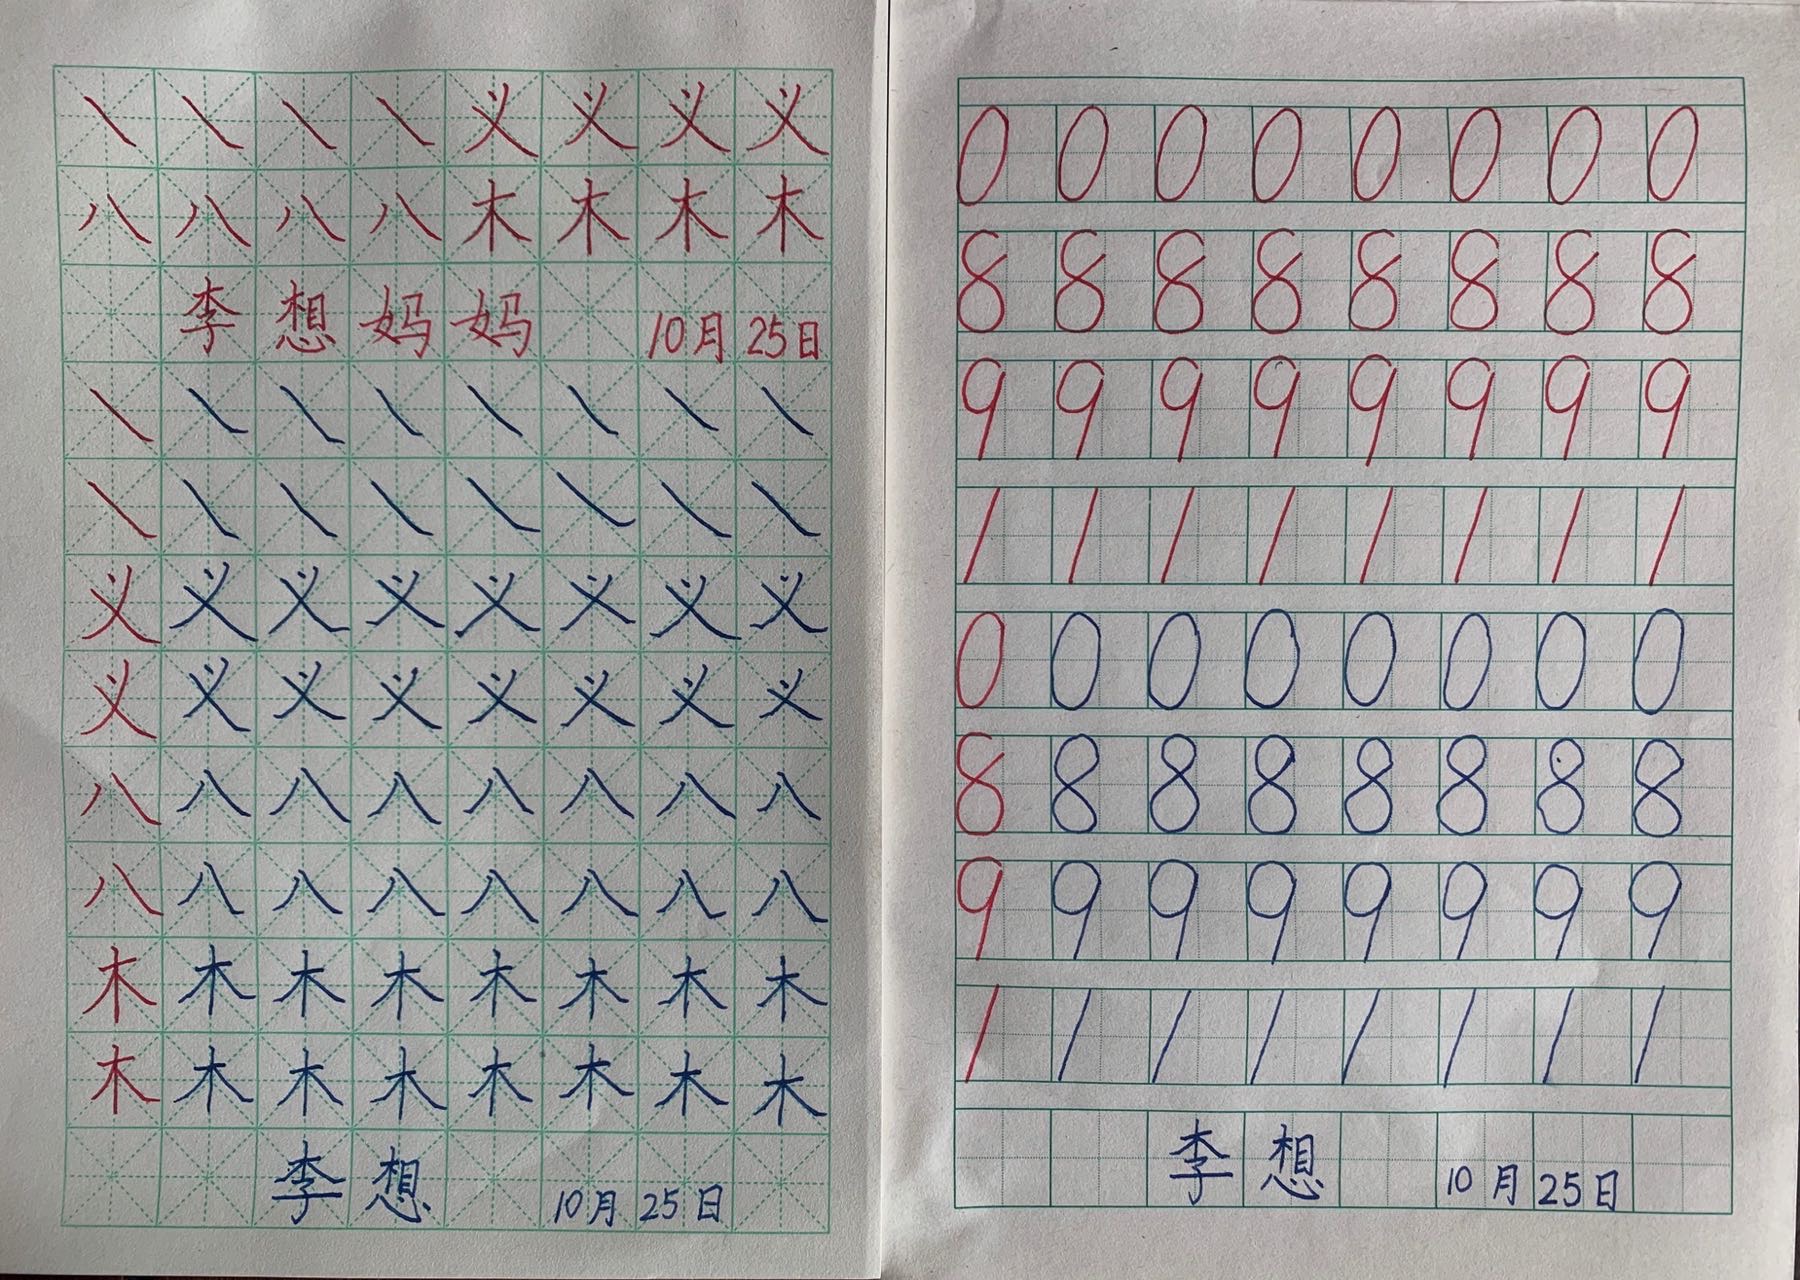 ㇏ ㇏ ㇏ ㇏ 义 义 义 义
八 八 八 八 木 木 木 木
李 想 妈 妈 10月 25日
㇏ ㇏ ㇏ ㇏ ㇏ ㇏ ㇏ ㇏
㇏ ㇏ ㇏ ㇏ ㇏ ㇏ ㇏ ㇏
义 义 义 义 义 义 义 义
义 义 义 义 义 义 义 义
八 八 八 八 八 八 八 八
八 八 八 八 八 八 八 八
木 木 木 木 木 木 木 木
木 木 木 木 木 木 木 木
李 想 10月 25日
0 0 0 0 0 0 0 0
8 8 8 8 8 8 8 8
9 9 9 9 9 9 9 9
1 1 1 1 1 1 1 1
0 0 0 0 0 0 0 0
8 8 8 8 8 8 8 8
9 9 9 9 9 9 9 9
1 1 1 1 1 1 1 1
李 想 10月 25日